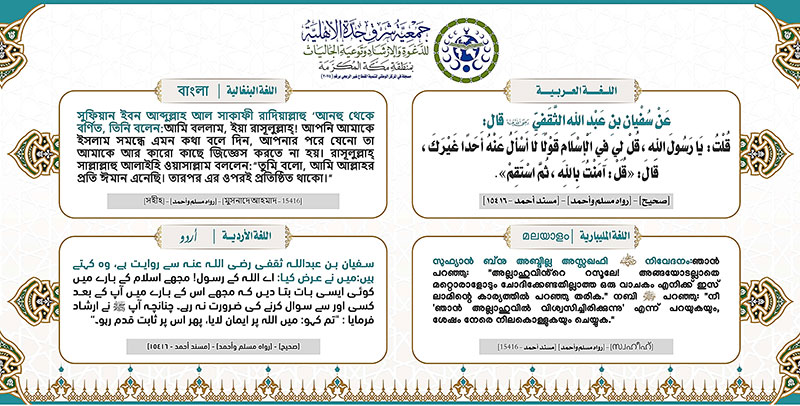 جمعية شرق جدة الأهلية
للدعوة والإرشاد وتوعية الجاليات
بمنطقة مكة المكرمة
اللغة العربية
عَنْ سُفْيَان بن عَبْد الله الثَّقَفِيّ رضي الله عنه قال:
قُلْتُ: يا رَسُول الله، قل لي في الإسْلام قَوْلًا لا أَسْأَلُ عَنْهُ أَحَدًا غَيْرَكَ،
قَالَ: «قُلْ: آمَنْتُ بِاللهِ، ثُمَّ اسْتَقِمْ».
[صحيح] – [رواه مسلم وأحمد] – [مسند أحمد – ١٥٤١٦]
اللغة البنغالية | বাংলা
সুফিয়ান ইবন আব্দুল্লাহ আল সাকাফী রাদিয়াল্লাহু ‘আনহু থেকে
বর্ণিত, তিনি বলেন:আমি বললাম, ইয়া রাসূলুল্লাহ! আপনি আমাকে
ইসলাম সমন্ধে এমন কথা বলে দিন, আপনার পরে যেনো তা
আমাকে আর কারো কাছে জিজ্ঞেস করতে না হয়। রাসূলুল্লাহ্
সাল্লাল্লাহু আলাইহি ওয়াসাল্লাম বললেন:“তুমি বলো, আমি আল্লাহর
প্রতি ঈমান এনেছি। তারপর এর ওপরই প্রতিষ্ঠিত থাকো।”
[সহীহ] – [رواه مسلم وأحمد] – [মুসনাদে আহমাদ - 15416]
اللغة المليبارية | മലയാളം
സുഫ്‌യാൻ ബ്‌നു അബ്ദില്ല അസ്ഥഖഫി നിവേദനം:ഞാൻ
പറഞ്ഞു: "അല്ലാഹുവിൻ്റെ റസൂലേ! അങ്ങയോടല്ലാതെ
മറ്റൊരാളോടും ചോദിക്കേണ്ടതില്ലാത്ത ഒരു വാചകം എനിക്ക് ഇസ്
ലാമിൻ്റെ കാര്യത്തിൽ പറഞ്ഞു തരിക." നബി ﷺ പറഞ്ഞു: "നീ
'ഞാൻ അല്ലാഹുവിൽ വിശ്വസിച്ചിരിക്കുന്നു' എന്ന് പറയുകയും,
ശേഷം നേരെ നിലകൊള്ളുകയും ചെയ്യുക."
[സ്വഹീഹ്] – [رواه مسلم وأحمد] – [مسند أحمد - 15416]
اللغة الأردية | اُردُو
سفیان بن عبداللہ ثقفی رضی اللہ عنہ سے روایت ہے، وہ کہتے
ہیں:میں نے عرض کیا: اے اللہ کے رسول! مجھے اسلام کے بارے میں
کوئی ایسی بات بتا دیں کہ مجھے اس کے بارے میں آپ کے بعد
کسی اور سے سوال کرنے کی ضرورت نہ رہے۔ چنانچہ آپ ﷺ نے ارشاد
فرمایا : "تم کہو: میں اللہ پر ایمان لایا، پھر اس پر ثابت قدم رہو۔"
[صحیح] – [رواه مسلم وأحمد] – [مسند أحمد – ١٥٤١٦]